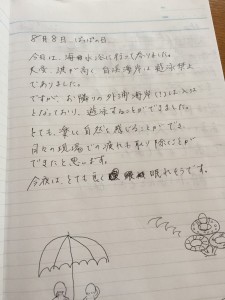 8月8日 ぱぱの日
今日は、海水浴に行って参りました。
大変、波が高く 白浜海岸は遊泳禁止
でありました。
ですが、お隣りの外浦海岸
となっており、遊泳することができました。
とても、楽しく自然を感じることができ、
日々の現場での疲れも取り除くことが
できたと思います。
今夜は、とても良く 眠れそうです。